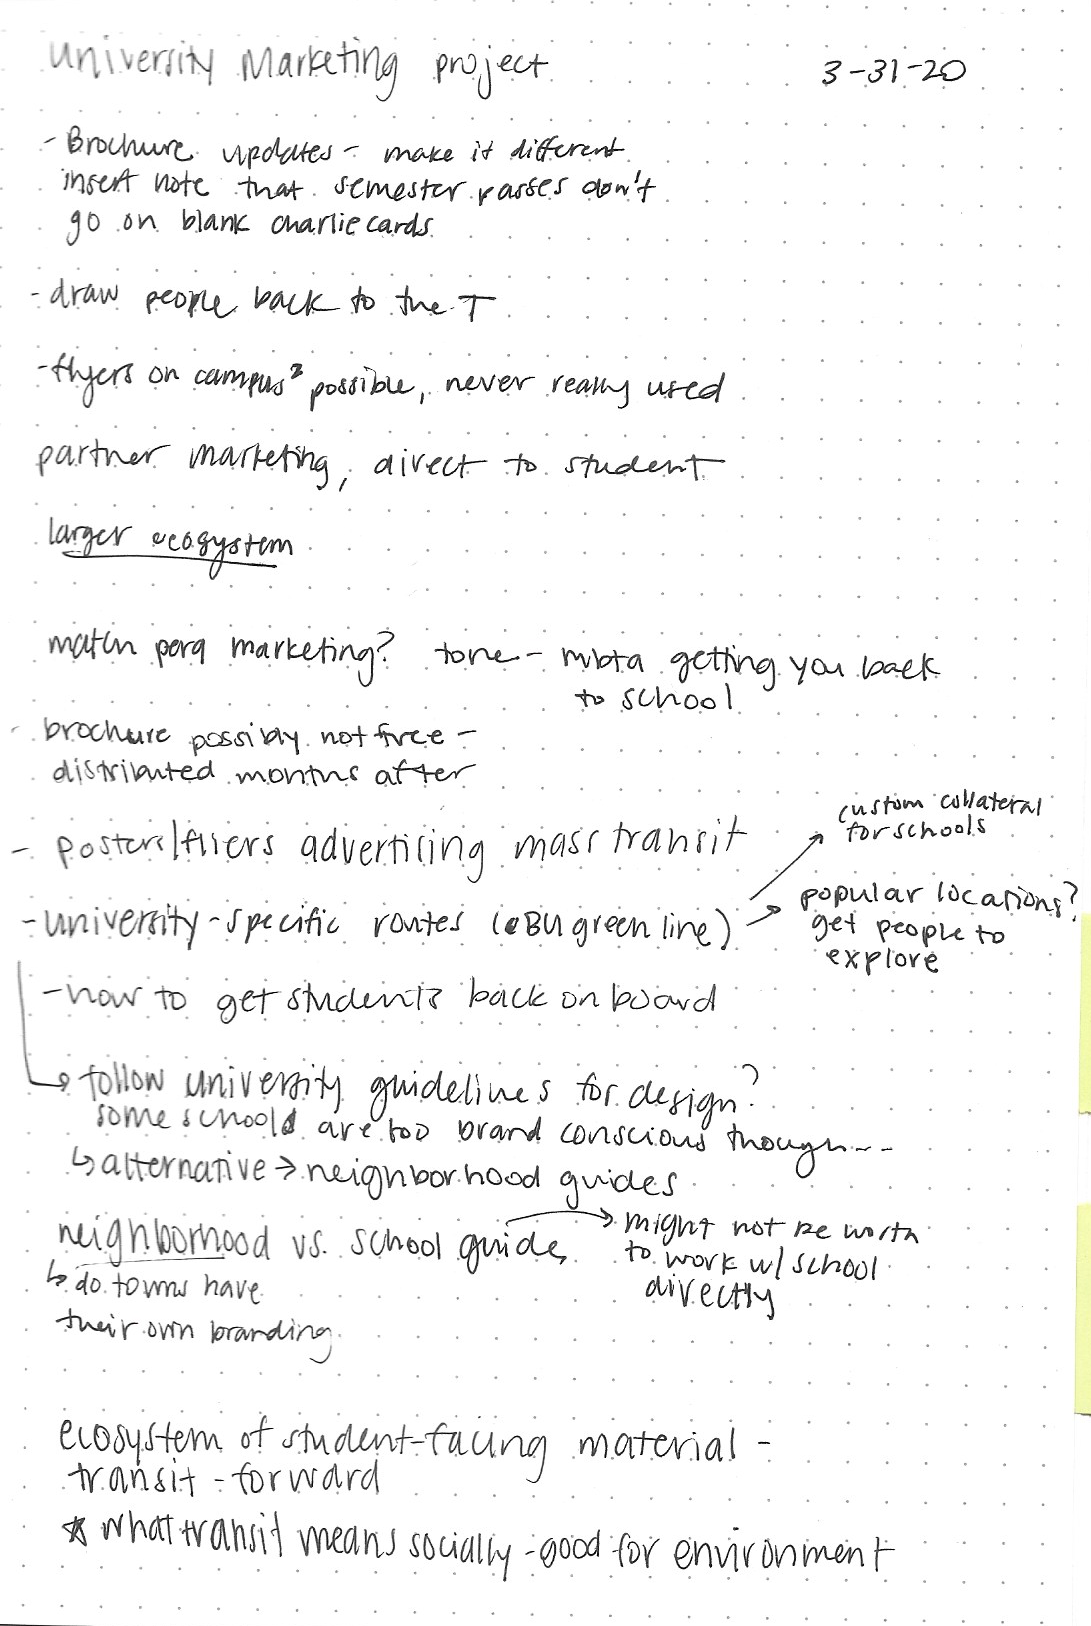 University Marketing project
3-31-20
- Brochure updates - make it different
insert note that semester passes don't
go on blank charliecards
- draw people back to the T
- flyers on campus? possible, never really used
partner marketing, direct to student
larger ecosystem
match perq marketing? tone - mbta getting you back
to school
- brochure possibly not free -
distributed months after
- posters/fliers advertising mass transit
custom collateral
for schools
- university-specific routes (BU green line)
popular locations?
get people to
explore
- how to get students back on board
↳ follow university guidelines for design?
some schools are too brand conscious though---
↳ alternative → neighborhood guides
neighborhood vs. school guide
→ might not be worth
to work w/ school
directly
↳ do towns have
their own branding
ecosystem of student-facing material -
transit-forward
* what transit means socially - good for environment